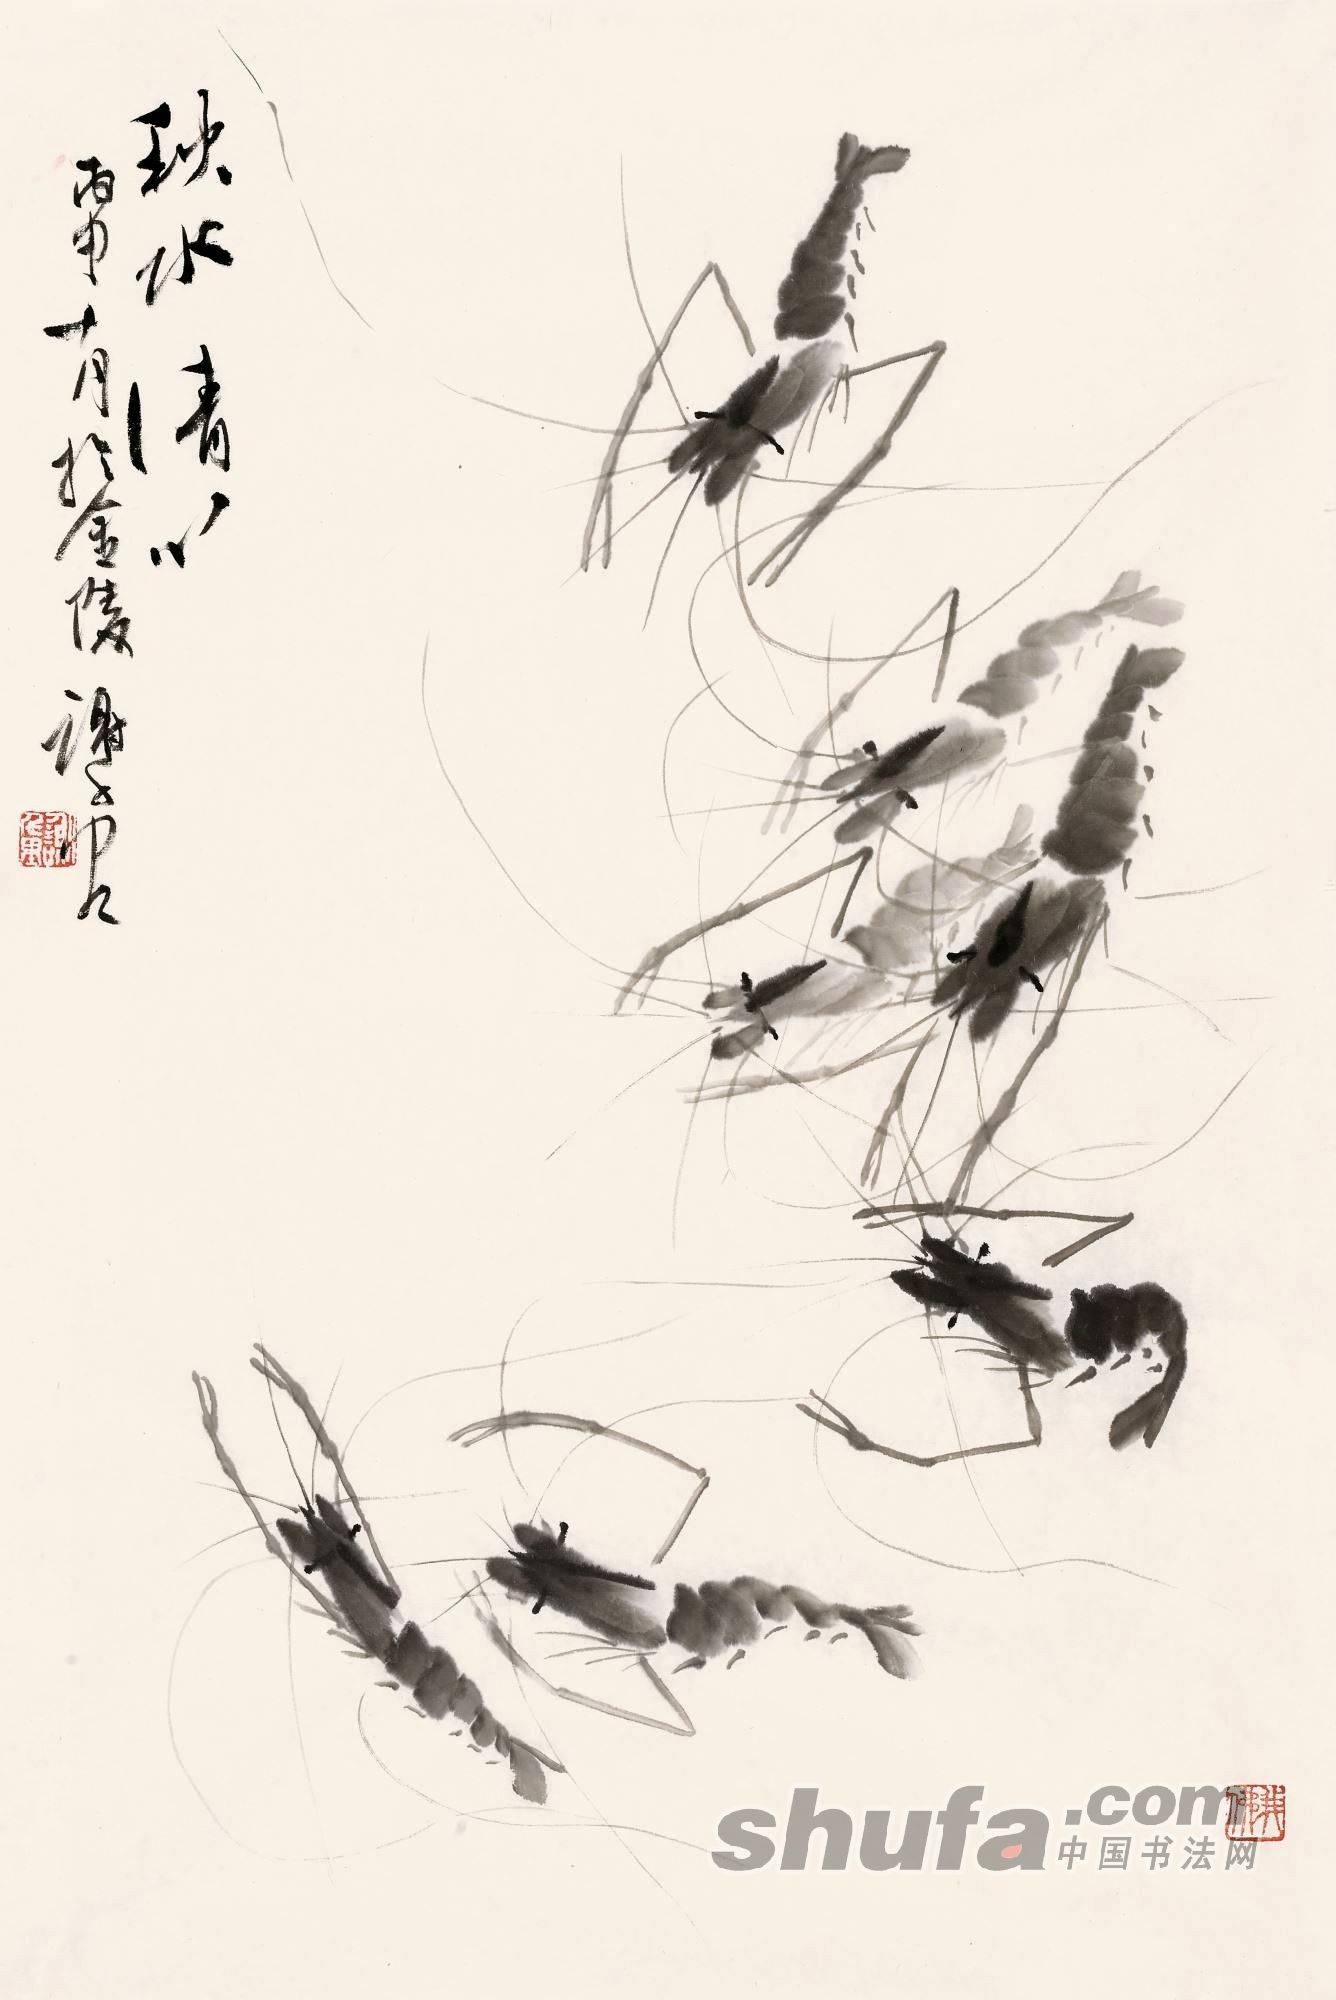 秋水清心
丙申十月於金陵 谢
shufa.com
中国书法网